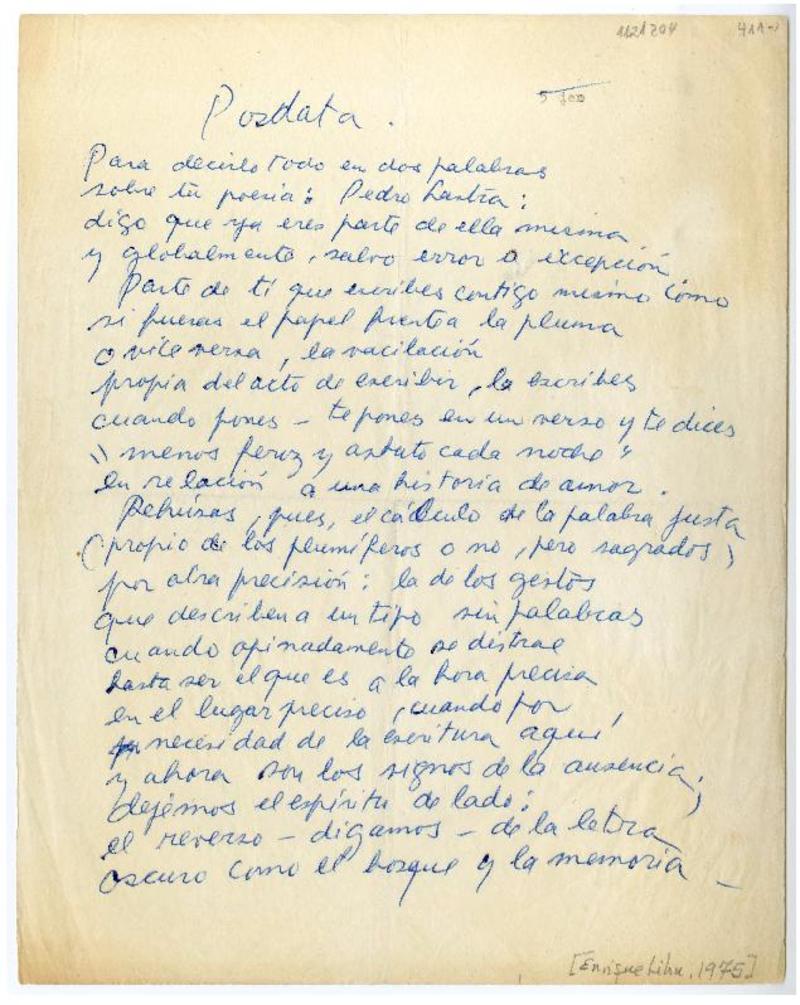 1121704
Posdata.
Para decirlo todo en dos palabras
sobre tu poesía: Pedro Lastra:
digo que ya eres parte de ella misma
y globalmente, salvo error o excepción.
Parte de ti que escribes contigo mismo como
si fueras el papel frente a la pluma
o viceversa, la vacilación
propia del acto de escribir, la escribes
cuando pones - te pones en un verso y te dices
"menos feroz y astuto cada noche"
en relación a una historia de amor.
Rehúsas, pues, el cálculo de la palabra justa
(propio de los plumíferos o no, pero sagrados)
por otra precisión: la de los gestos
que describen a un tipo sin palabras
cuando apinadamente se distrae
hasta ser el que es a la hora precisa
en el lugar preciso, cuando por
necesidad de la escritura aquí
y ahora son los signos de la ausencia;
dejemos el espíritu de lado:
el reverso - digamos - de la letra
oscuro como el bosque y la memoria -
[Enrique Lihn, 1975]